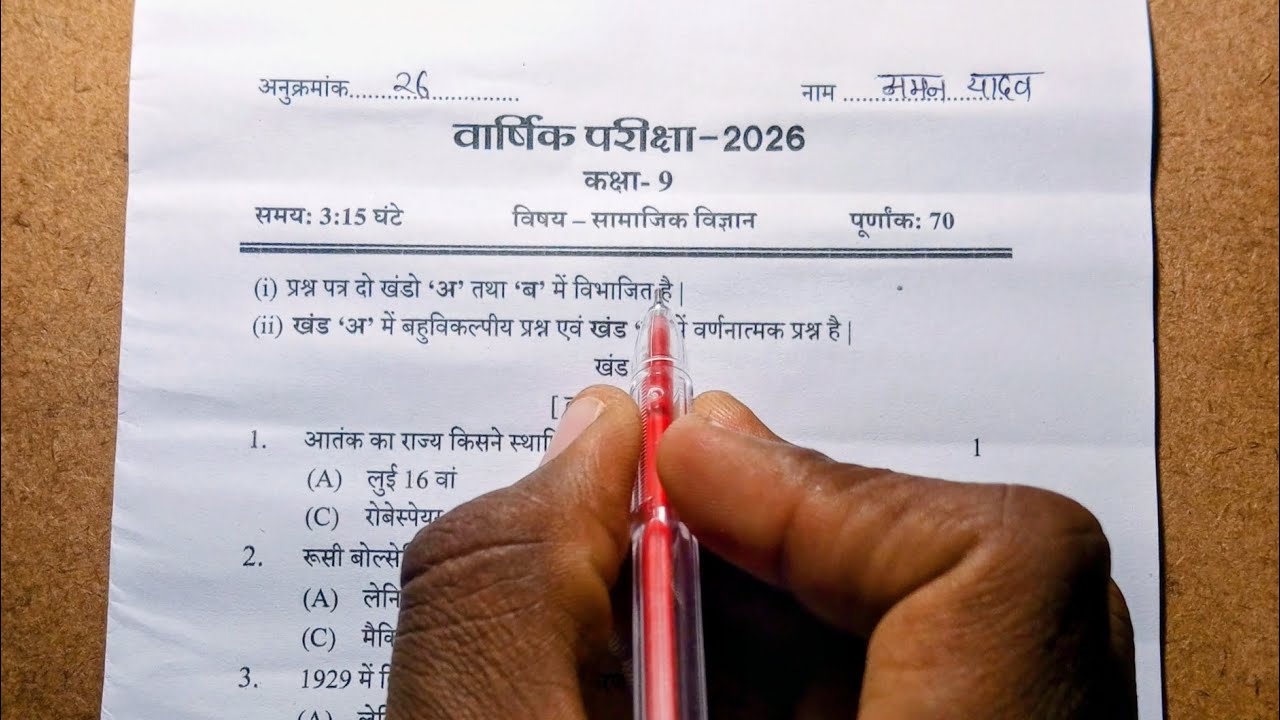 अनुक्रमांक......26......................
नाम ......नमन यादव
वार्षिक परीक्षा-2026
कक्षा- 9
समय: 3:15 घंटे विषय – सामाजिक विज्ञान पूर्णांक: 70
(i) प्रश्न पत्र दो खंडो ‘अ’ तथा ‘ब’ में विभाजित है |
(ii) खंड ‘अ’ में बहुविकल्पीय प्रश्न एवं खंड में वर्णनात्मक प्रश्न है |
खंड
1. आतंक का राज्य किसने 1
(A) लुई 16 वां
(C) रोबेस्पेयर
2. रूसी
(A)
(C)
3. 1929 में
(A)